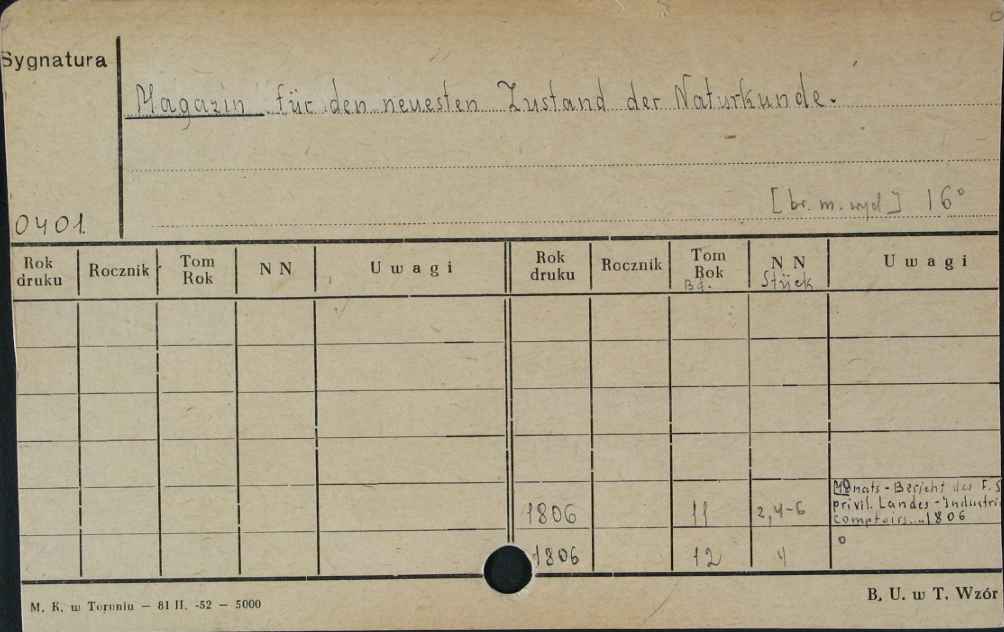 Sygnatura
Magazin für den neuesten Zustand der Naturkunde.
[br. m. wyd] 16°
0401
Rok druku Rocznik Tom Rok N N Uwagi Rok druku Rocznik Tom Rok Bd. N N Stück Uwagi
Monats-Bericht des F. S
privil. Landes-Industri
1806 11 2,4-6 comptoirs... 1806
1806 12 4 o
M. K. w Toruniu — 81 II. -52 — 5000
B. U. w T. Wzór